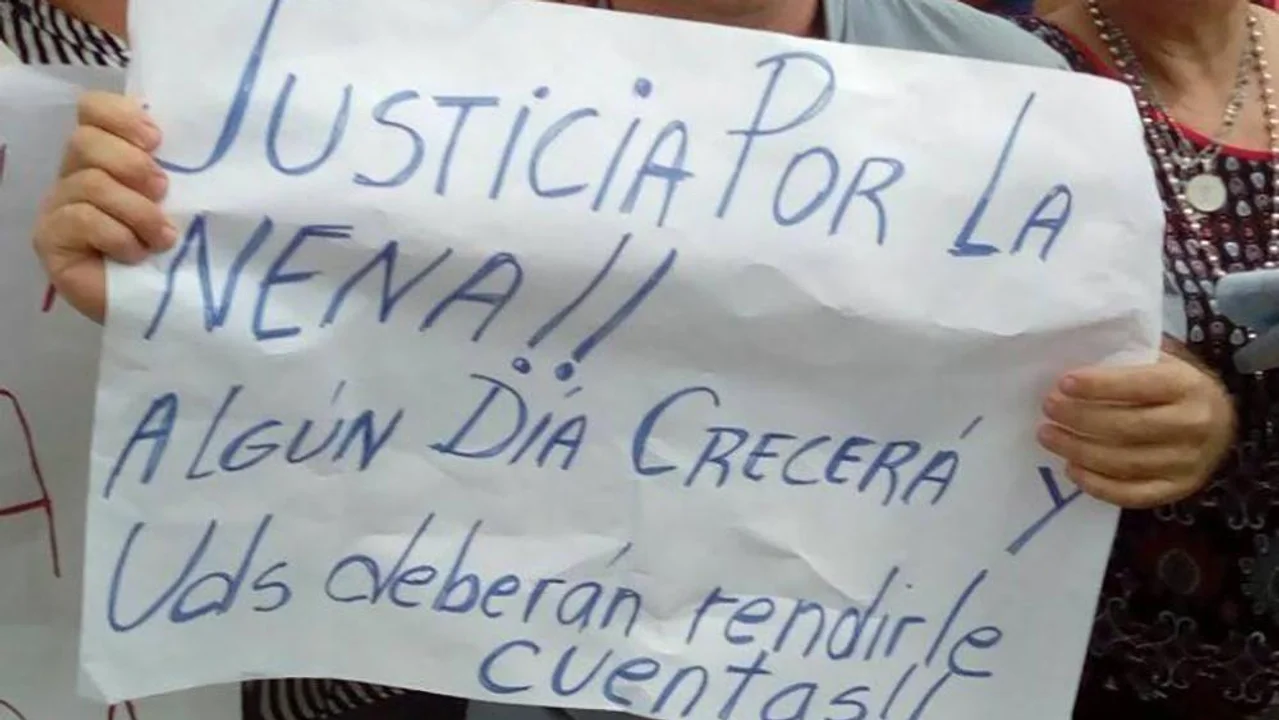 JUSTiCiA POR LA
NENA!!
ALGÚN DÍA CRECERÁ y
Uds deberán rendirle
cuentas!!